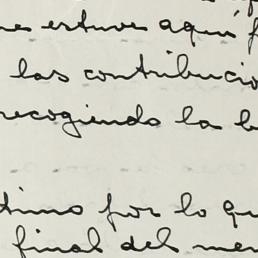 estuve aquí
las contribucio
recogiendo la
timo por lo qu
final del me